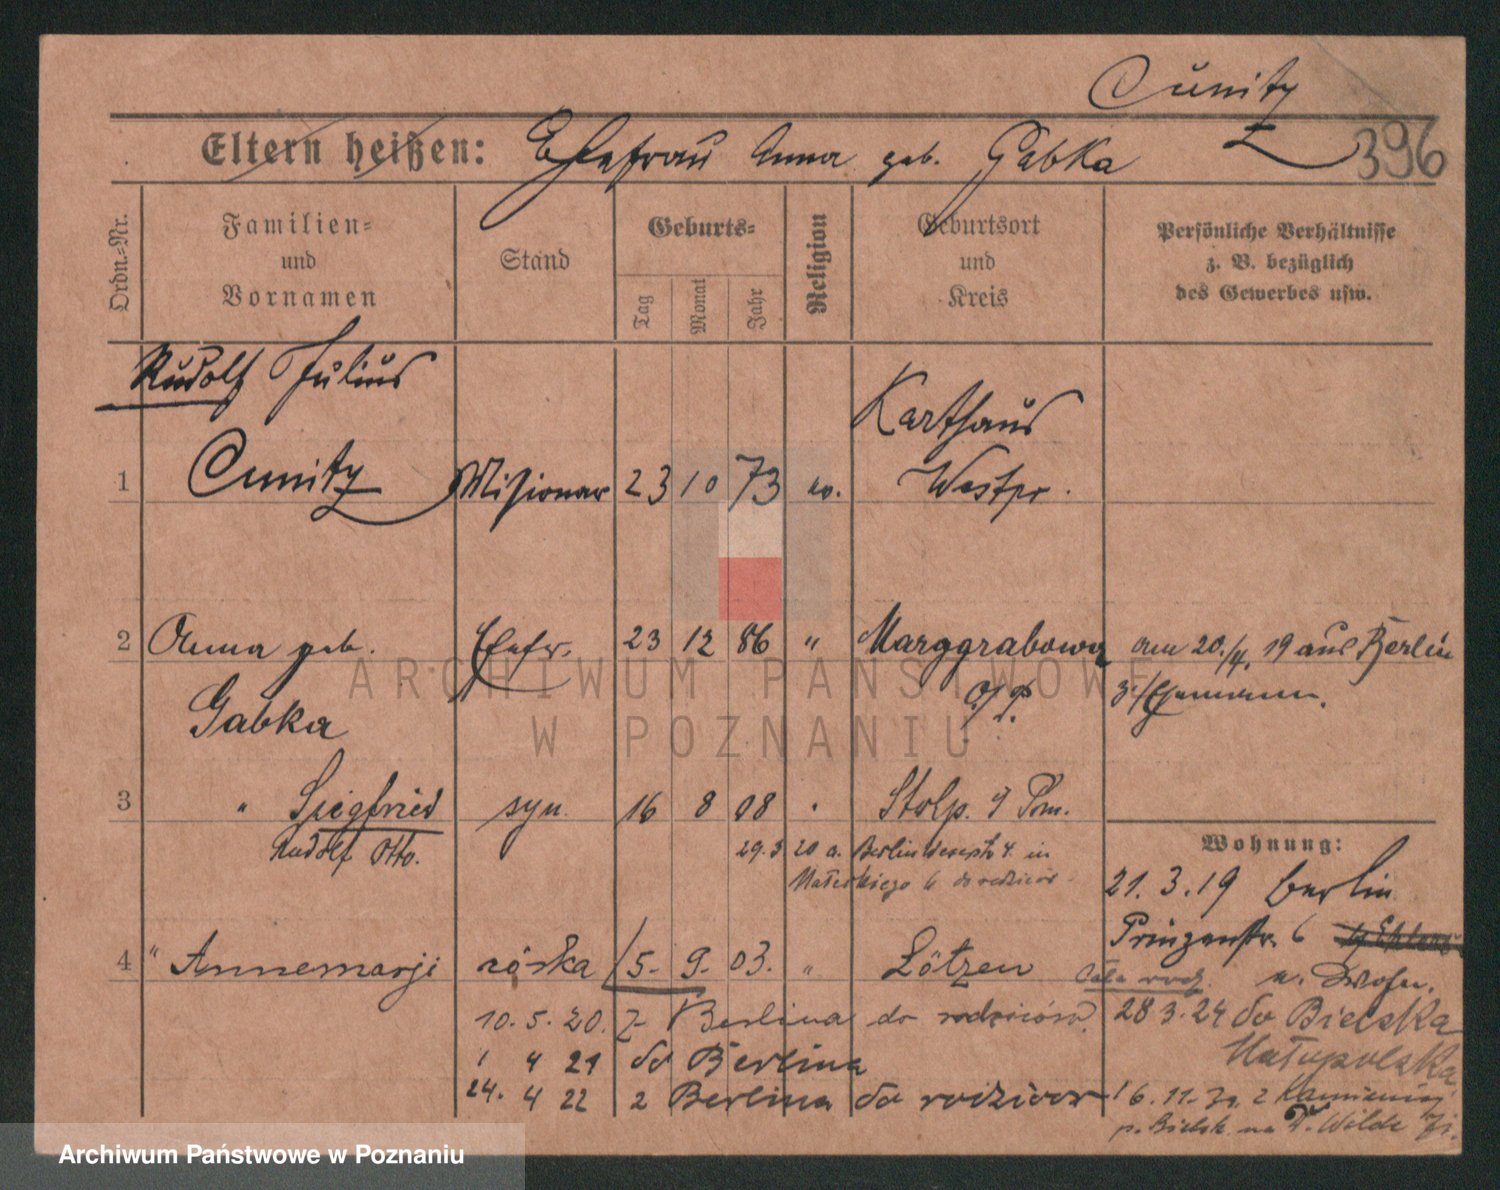 Cunitz
396
Eltern heißen: Ehefrau Anna geb. Gabka
Ordn.-Nr.
Familien- und Vornamen
Stand
Geburts-
Tag Monat Jahr
Religion
Geburtsort und Kreis
Persönliche Verhältnisse
z. B. bezüglich
des Gewerbes usw.
Rudolf Julius
Karthaus
1 Cunitz Missionar 23 10 73 ev. Westpr.
2 Anna geb. Ehefr. 23 12 86 " Marggrabowa am 20./4. 19 aus Berlin
Gabka O/P. z./Ehemann.
3 " Siegfried syn 16 8 08 " Stolp i/ Pom.
Rudolf Otto.
29.3 20 a. Berlin 4. in
Matejkiego 6 do rodziców
Wohnung:
21. 3. 19 Berlin
Prinzenstr. 6
4 " Annemarji córka 15. 9. 03. " Lötzen
Cała rodz. u. Wwohn.
10. 5. 20. z Berlina do rodziców. 28 3. 24 do Bielska
1 4 21 do Berlina Małopolska
24. 4 22 z Berlina do rodziców 16. 11. z Kamienicy
p. Bielsk. na W. Wilde
ARCHIWUM PAŃSTWOWE
W POZNANIU
Archiwum Państwowe w Poznaniu